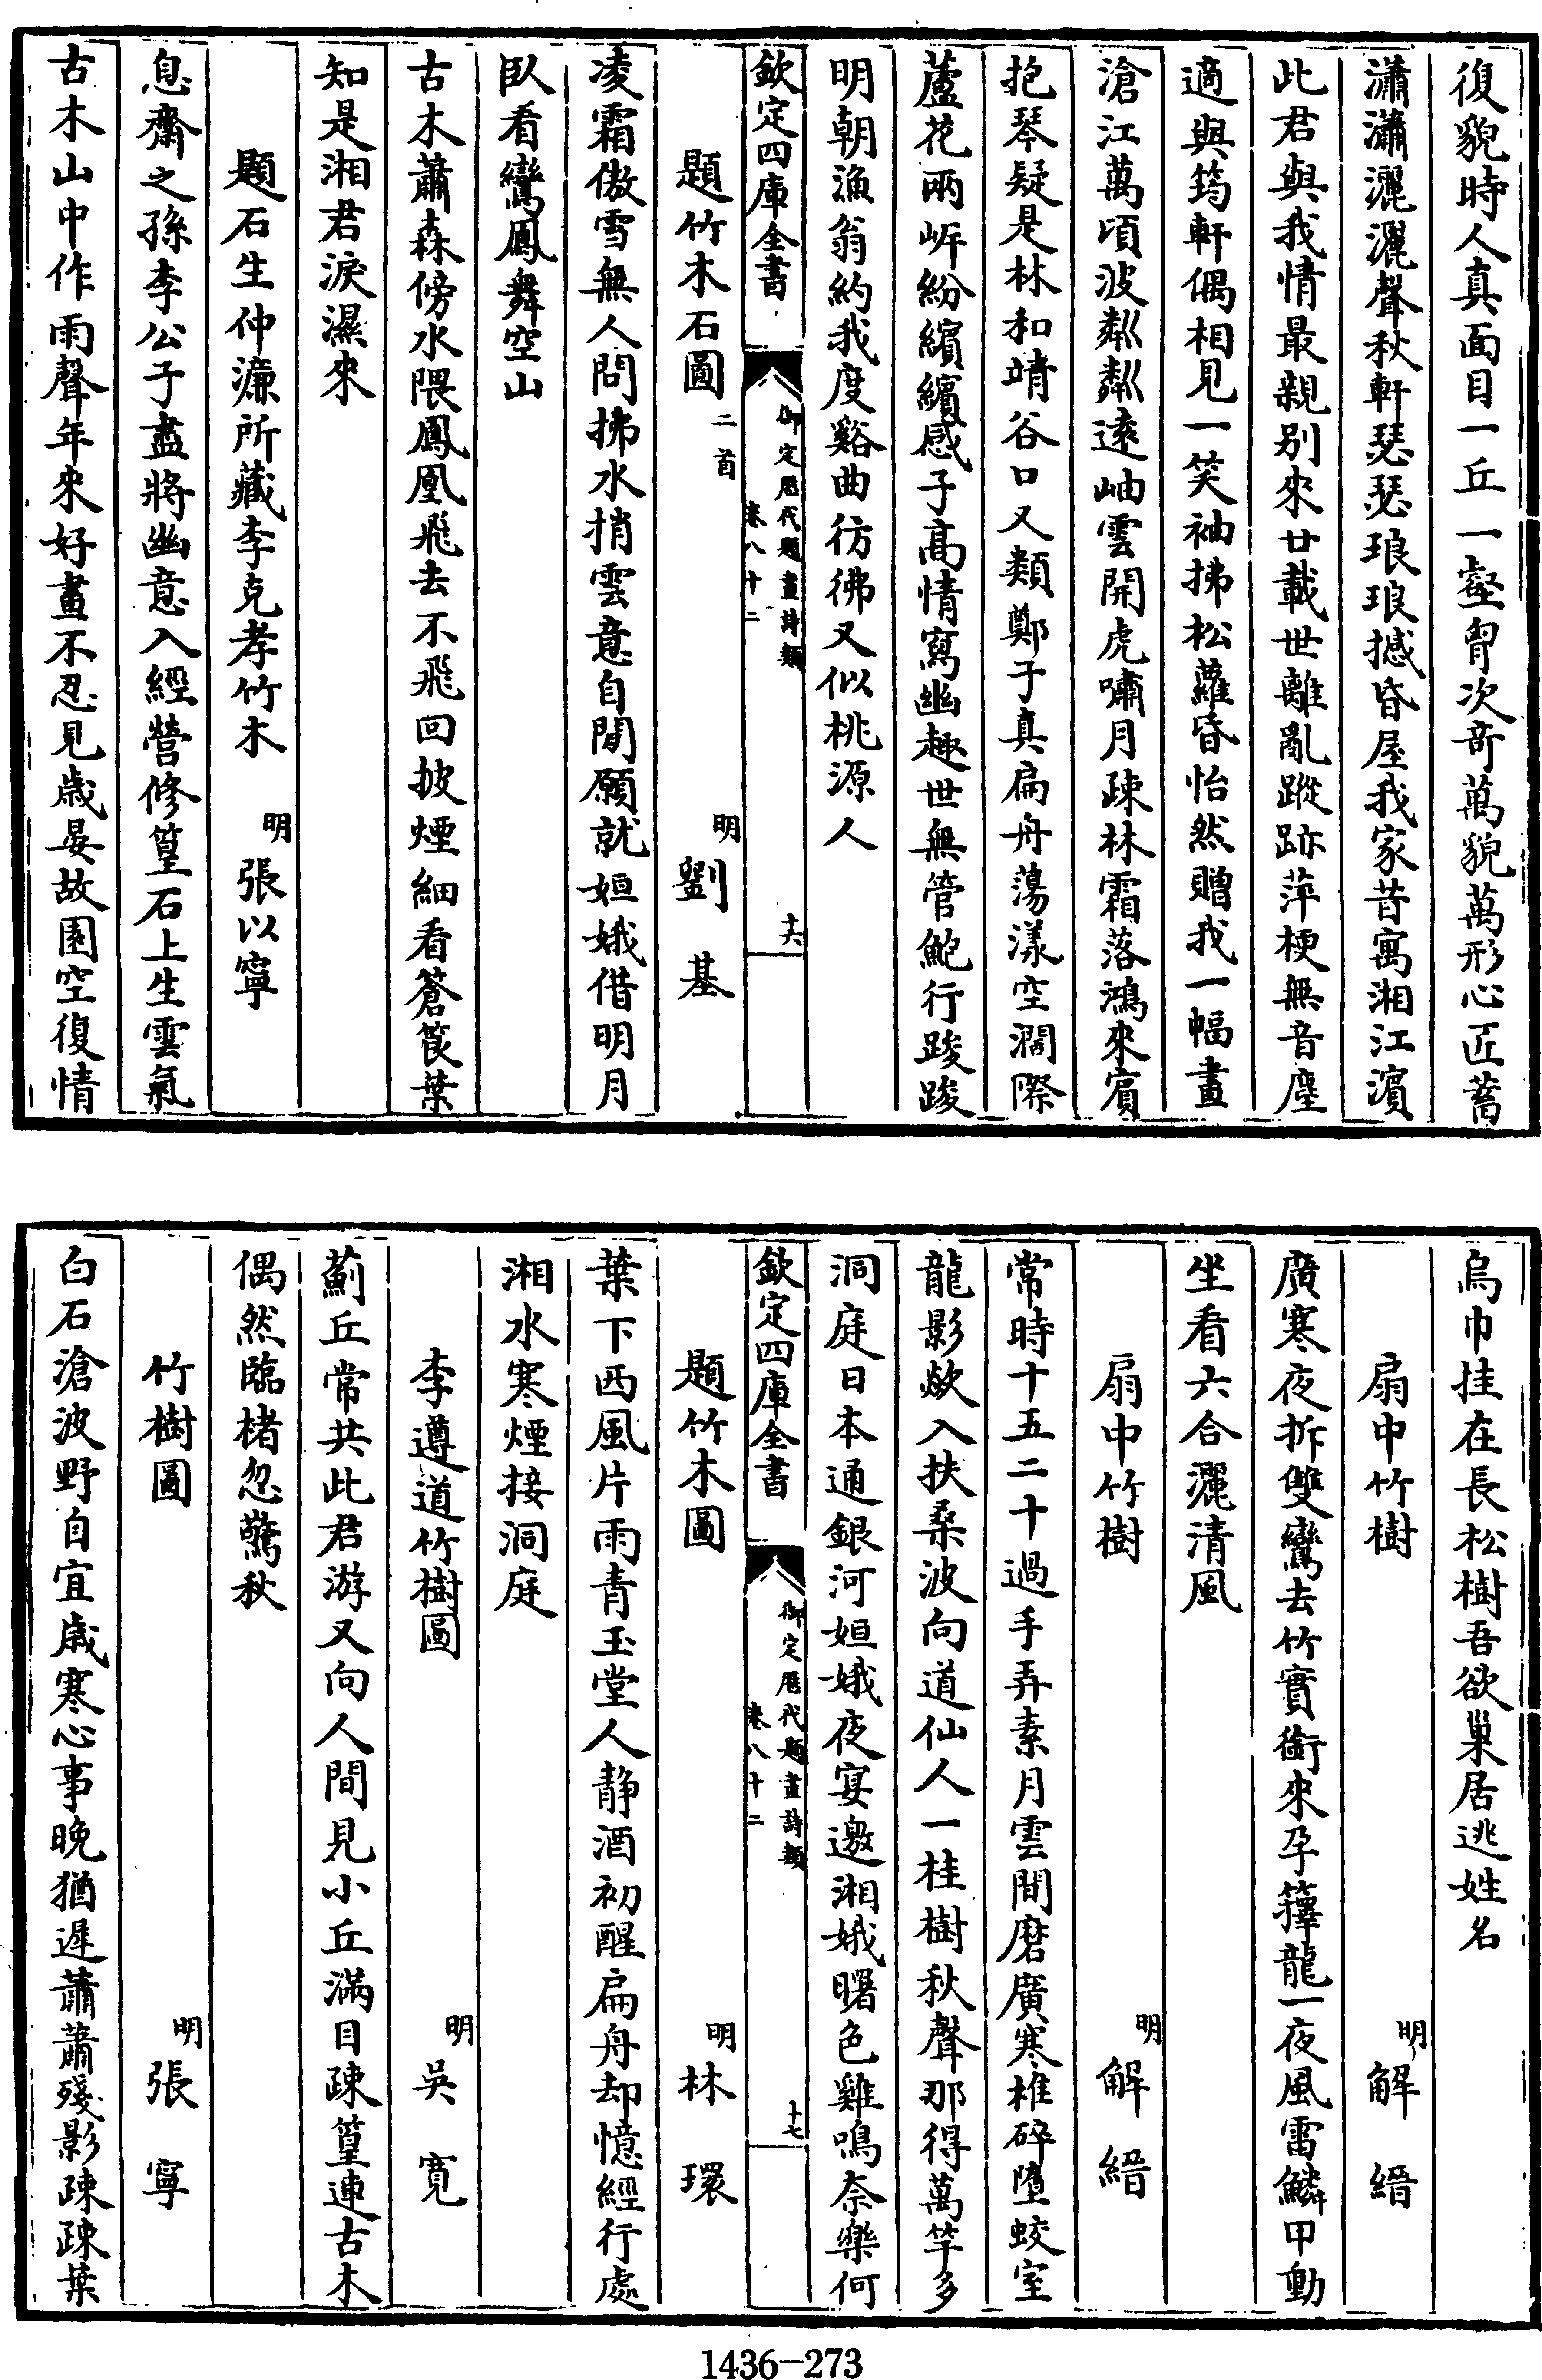 復貌時人真面目一丘一壑胷次奇萬貌萬形心匠蓄
瀟瀟灑灑聲秋軒瑟瑟琅琅撼昏屋我家昔寓湘江濱
此君與我情最親别來廿載世離亂蹤跡萍梗無音塵
適與筠軒偶相見一笑袖拂松蘿昏怡然贈我一幅畫
滄江萬頃波粼粼遠岫雲開虎嘯月疎林霜落鴻來賓
抱琴疑是林和靖谷口又類鄭子真扁舟蕩漾空濶際
蘆花兩岍紛繽繽感子高情寫幽趣世無管鮑行踆踆
明朝漁翁約我度谿曲彷彿又似桃源人
欽定四庫全書
御定歴代題畫詩類
卷八十二
十六
題竹木石圖二首 明劉基
凌霜傲雪無人問拂水捎雲意自閒願就姮娥借明月
臥看鸞鳳舞空山
古木蕭森傍水隈鳳凰飛去不飛回披煙細看蒼筤葉
知是湘君淚濕來
題石生仲濂所藏李克孝竹木 明張以寧
息齋之孫李公子盡將幽意入經營修篁石上生雲氣
古木山中作雨聲年來好畫不忍見歲晏故園空復情
烏巾挂在長松樹吾欲巢居逃姓名
扇中竹樹 明解縉
廣寒夜拆雙鸞去竹實銜來孕籜龍一夜風雷鱗甲動
坐看六合灑清風
扇中竹樹 明解縉
常時十五二十過手弄素月雲間磨廣寒椎碎墮蛟室
龍影欻入扶桑波向道仙人一桂樹秋聲那得萬竿多
洞庭日本通銀河姮娥夜宴邀湘娥曙色雞鳴奈樂何
欽定四庫全書
御定歴代題畫詩類
卷八十二
十七
題竹木圖 明林環
葉下西風片雨青玉堂人静酒初醒扁舟却憶經行處
湘水寒煙接洞庭
李遵道竹樹圖 明吳寬
薊丘常共此君游又向人間見小丘滿目疎篁連古木
偶然臨楮忽驚秋
竹樹圖 明張寧
白石滄波野自宜歲寒心事晚猶遲蕭蕭殘影疎疎葉
1436-273